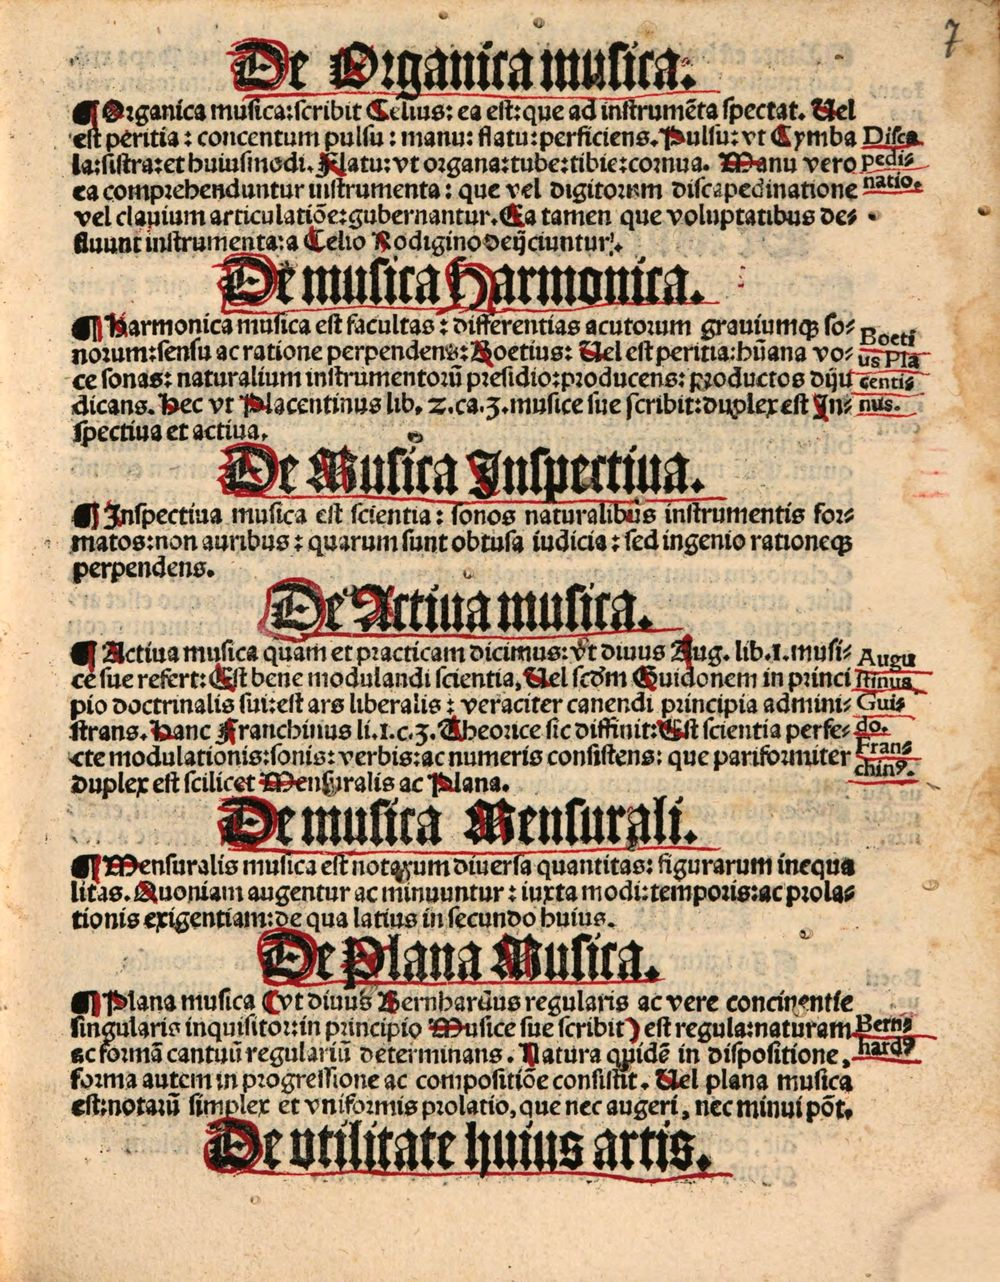 7
De Organica musica.
¶ Organica musica: scribit Celius: ea est: que ad instrumẽta spectat. Uel
est peritia: concentum pulsu: manu: flatu: perficiens. Pulsu: vt Cymba
la: sistra: et huiusmodi. Flatu: vt organa: tube: tibie: cornua. Manu vero
ea comprehenduntur instrumenta: que vel digitorum discapedinatione
vel clauium articulatiõe: gubernantur. Ea tamen que voluptatibus de⸗
fluunt instrumenta: a Celio Rodigino deijciuntur.
Disca
pedi⸗
natio.
De musica Harmonica.
¶ Harmonica musica est facultas: differentias acutorum grauiumqꝫ so⸗
norum: sensu ac ratione perpendens: Boetius: Uel est peritia: hũana vo⸗
ce sonas: naturalium instrumentorũ presidio: producens: productos diju
dicans. Hec vt Placentinus lib. 2. ca. 3. musice sue scribit: duplex est In⸗
spectiua et actiua.
Boeti
us Pla
centi⸗
nus.
De Musica Inspectiua.
¶ Inspectiua musica est scientia: sonos naturalibus instrumentis for⸗
matos: non auribus: quarum sunt obtusa iudicia: sed ingenio rationeqꝫ
perpendens.
De Actiua musica.
¶ Actiua musica quam et practicam dicimus: vt diuus Aug. lib. 1. musi⸗
ce sue refert: Est bene modulandi scientia, Uel scdm̃ Guidonem in princi
pio doctrinalis sui: est ars liberalis: veraciter canendi principia admini⸗
strans. Hanc Franchinus li. 1. c. 3. Theorice sic diffinit: Est scientia perfe⸗
cte modulationis: sonis: verbis: ac numeris consistens: que pariformiter
duplex est scilicet Mensuralis ac Plana.
Augu
stinus
Gui⸗
do.
Fran⸗
chinꝰ.
De musica Mensurali.
¶ Mensuralis musica est notarum diuersa quantitas: figurarum inequa
litas. Quoniam augentur ac minuuntur: iuxta modi: temporis: ac prola⸗
tionis exigentiam: de qua latius in secundo huius.
De Plana Musica.
¶ Plana musica (vt diuus Bernhardus regularis ac vere concinentie
singularis inquisitor: in principio Musice sue scribit) est regula: naturam
ac formã cantuũ regulariũ determinans. Natura quidẽ in dispositione,
forma autem in progressione ac compositiõe consistit. Uel plana musica
est: notarũ simplex et vniformis prolatio, que nec augeri, nec minui põt.
Bern⸗
hardꝰ
De vtilitate huius artis.